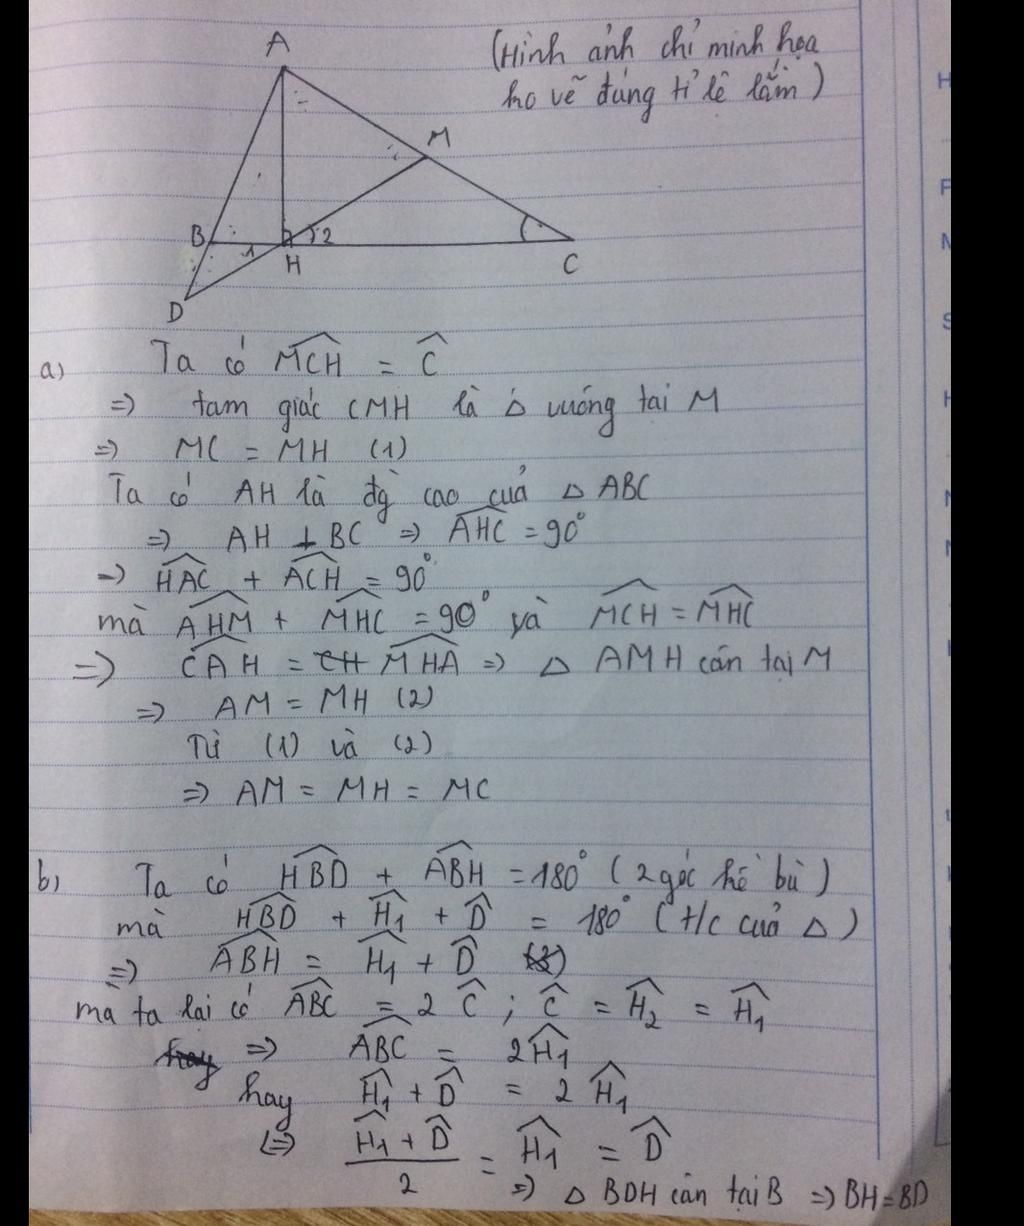 A
(Hình ảnh chỉ minh họa
ko vẽ đúng tỉ lệ lắm)
M
B
1
2
H
C
D
a) Ta có \widehat{MCH} = \widehat{C}
=> tam giác CMH là Δ vuông tại M
=> MC = MH (1)
Ta có AH là đg cao của Δ ABC
=> AH ⊥ BC => \widehat{AHC} = 90°
=> \widehat{HAC} + \widehat{ACH} = 90°
mà \widehat{AHM} + \widehat{MHC} = 90° và \widehat{MCH} = \widehat{MHC}
=> \widehat{CAH} = \widehat{MHA} => Δ AMH cân tại M
=> AM = MH (2)
Từ (1) và (2)
=> AM = MH = MC
b) Ta có \widehat{HBD} + \widehat{ABH} = 180° (2 góc kề bù)
mà \widehat{HBD} + \widehat{H_1} + \widehat{D} = 180° (t/c của Δ)
=> \widehat{ABH} = \widehat{H_1} + \widehat{D}
mà ta lại có \widehat{ABC} = 2 \widehat{C} ; \widehat{C} = \widehat{H_2} = \widehat{H_1}
=> \widehat{ABC} = 2\widehat{H_1}
hay \widehat{H_1} + \widehat{D} = 2 \widehat{H_1}
(=) \frac{\widehat{H_1} + \widehat{D}}{2} = \widehat{H_1} = \widehat{D}
=> Δ BDH cân tại B => BH = BD